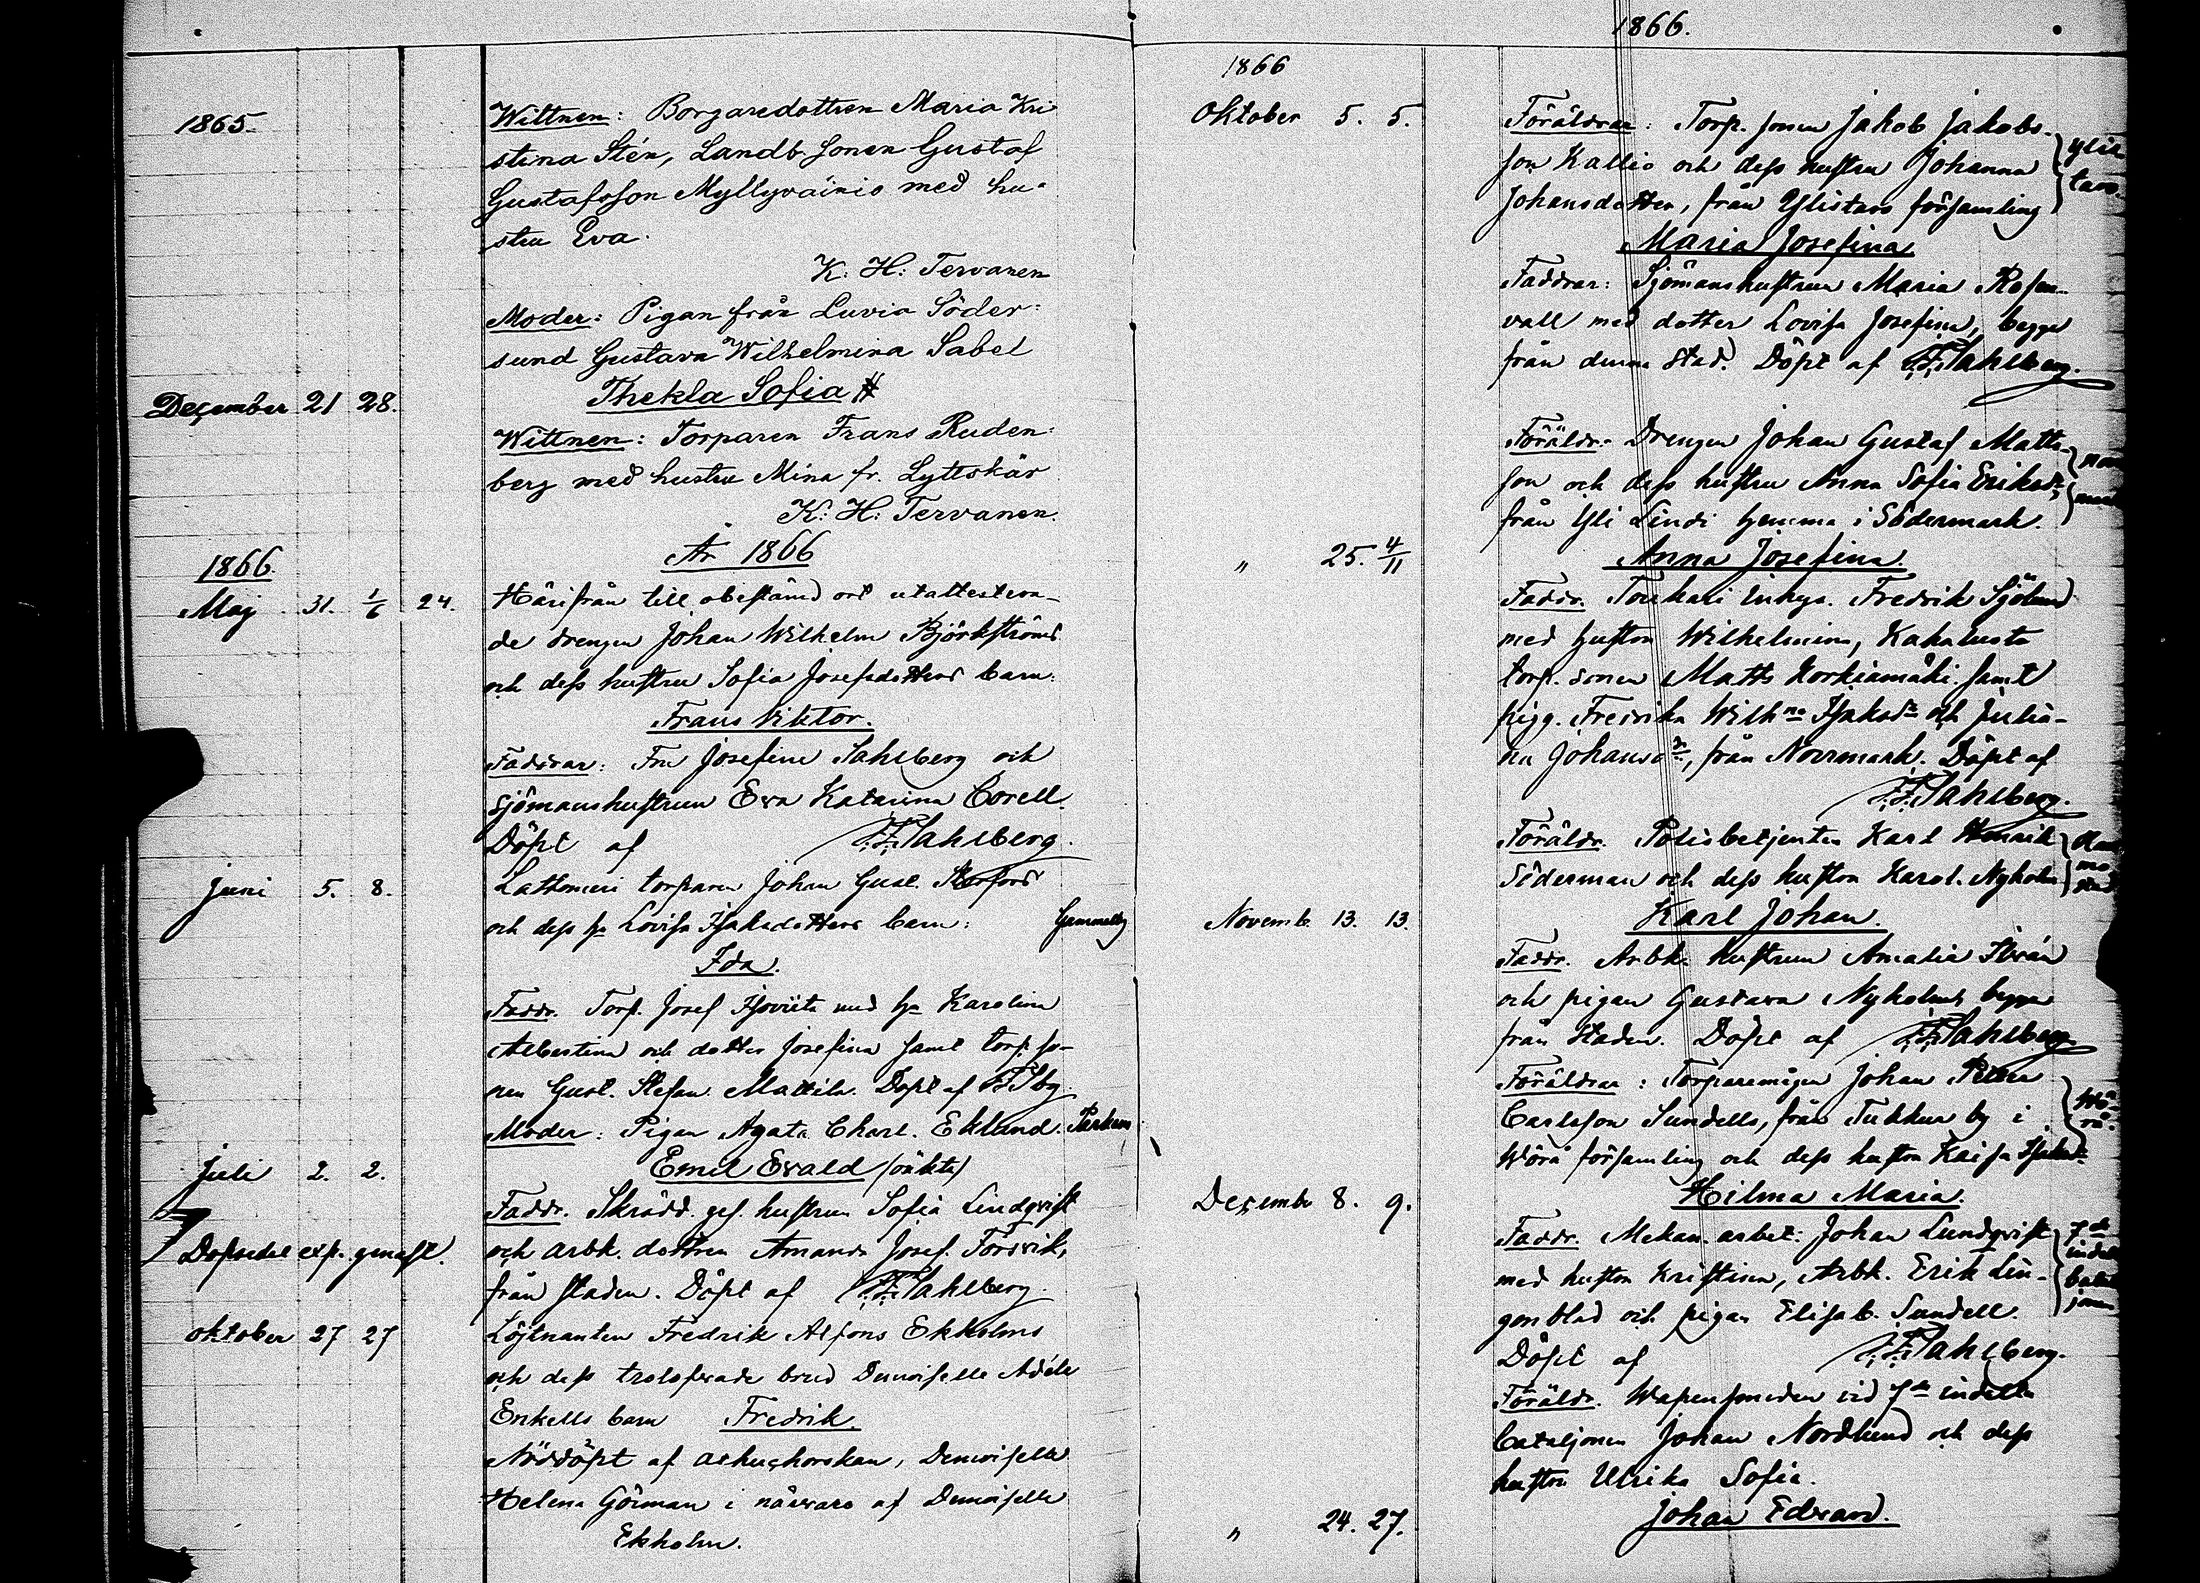 1865.
Wittnen: Borgaredottren Maria Kri
stina Stén, Landb. sonen Gustaf
Gustafsson Myllyväinio med hu-
stru Eva.
K: H: Tervanen
Moder: Pigan från Luvia Söder-
sund Gustava Wilhelmina Sabel
December 21 28. Thekla Sofia #
Wittnen: Torparen Frans Ruden-
berg med hustru Mina fr. Lyttskär
K: H: Tervanen.
År 1866
1866.
Maj 31. 1/6 24. Härifrån till obestämd ort utattestera-
de drengen Johan Wilhelm Björkströms
och dess hustru Sofia Josefsdotters barn:
Frans Viktor.
Faddrar: Fru Josefine Sahlberg och
sjömanshustrun Eva Katarina Corell.
Döpt af F.F. Sahlberg.
Juni 5. 8. Lattomeri torparen Johan Gust.
och dess h. Lovisa Isaksdotters barn: Gammelby
Ida.
Faddr. Torp. Josef med h. Karolina
Albertina och dotter Josefina samt torp. so-
nen Gust. Stefan Mattila. Döpt af F.F. Sbg.
Moder: Pigan Agata Charl. Eklund.
Juli 2. 2. Emil Evald (oäkta)
Faddr. Skrädd. ges. hustrun Sofia Lindqvist
Dopsedel exp. genast. och arbk. dottren Amanda Josef. Forsvik,
från staden. Döpt af F.F. Sahlberg.
Oktober 27 27 Löjtnanten Fredrik Alfons Ekholms
och dess trolofvade brud Demoiselle Adéle
Enkells barn Fredrik.
Nöddöpt af ackuchorskan, Demoiselle
Helena Görman i närvaro af Demoiselle
Ekholm.
1866.
1866
Oktober 5. 5. Föräldrar: Torp. sonen Jakob Jakobs-
son Kallio och dess hustru Johanna
Johansdotter, från Ylistaro församling
Ylis
taro.
Maria Josefina.
Faddrar: Sjömanshustrun Maria Rosen-
vall med dotter Lovisa Josefina, begge
från denna stad. Döpt af F.F. Sahlberg.
Föräldr. Drengen Johan Gustaf Matts-
son och dess hustru Anna Sofia Eriksdr
från Yli Lindi hemma i Södermark.
" 25. 4/11 Anna Josefina.
Faddr. Toukari inhys. Fredrik Sjölund
med hustru Wilhelmina, Kahaluoto
torp. sonen Matts Korkiamäki samt
pigg. Fredrika Wilhna Isaksdr och Julia-
na Johansdr, från Norrmark. Döpt af
F.F. Sahlberg.
Föräldr. Polisbetjenten Karl Henrik
Söderman och dess hustru Karol. Nyholm
Novemb. 13. 13. Karl Johan.
Faddr. Arbk. hustrun Amalia
och pigan Gustava Nyholm, begge
från staden. Döpt af F.F. Sahlberg
Föräldrar: Torparemågen Johan Petter
Carlsson Sundells, från Tukkur by i
Wörå församling och dess hustru Kaisa
Wö-
rå.
Decembr 8. 9. Hilma Maria.
Faddr. Mekan. arbet. Johan Lundqvist
med hustru Kristina, Arbk. Erik Lin-
gonblad och pigan Elisab. Sundell.
Döpt af F.F. Sahlberg.
7de
indel
batal
jonen
Föräldr. Wapensmeden vid 7de indelta
bataljonen Johan Nordlund och dess
hustru Ulrika Sofia.
" 24. 27. Johan Edvard.